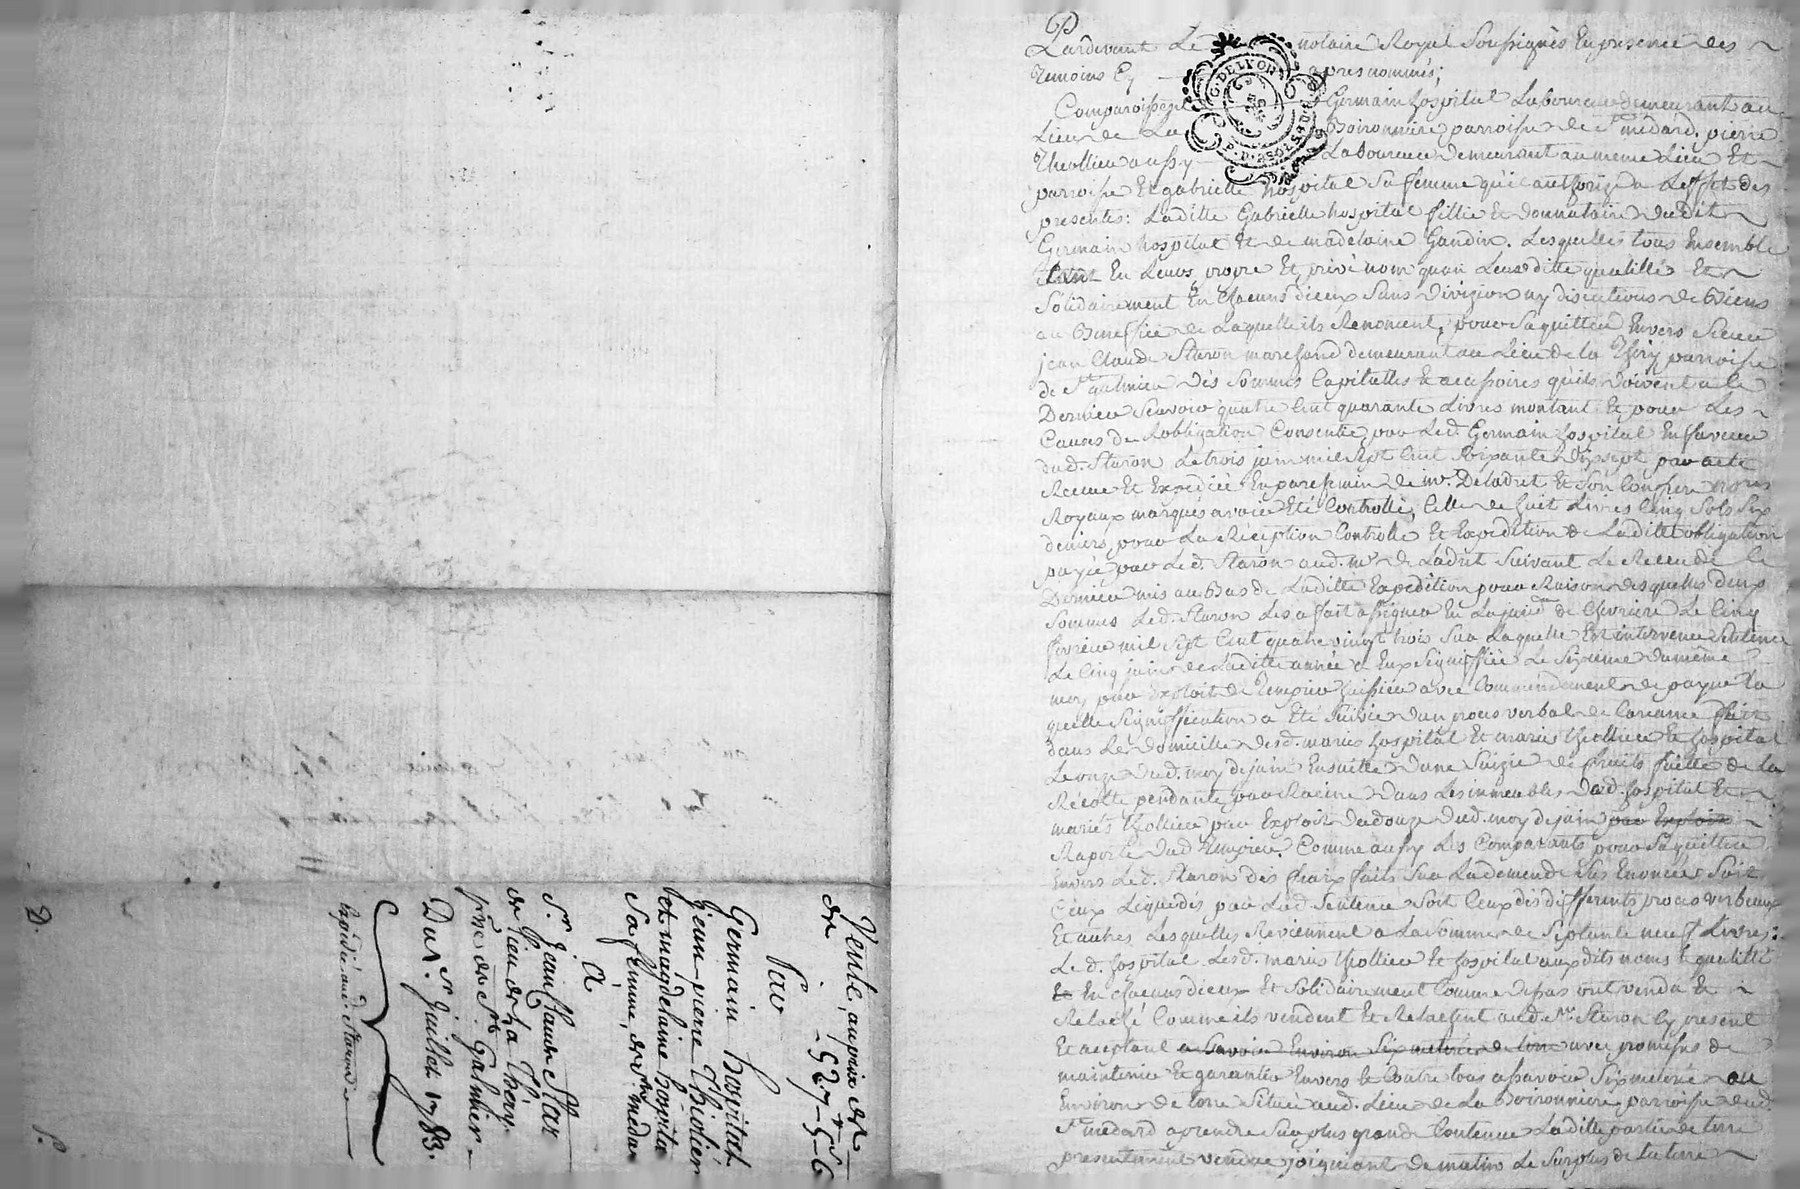 Vente, au prix de
de - 527 - 5 - 6
Par
Germain hospital
jean pierre Thiolier
et magdelaine hospital
Sa femme, de St. medar
A
Sr. jean Claude Star
du lieu de La Théry
psse. de St. Galmier.
Du 1r. juillet 1783.
Expédié aud. Staron
D.
G. DE LYON
Pardevant Le notaire Royal Soussignés En presence des
Temoins Cy apres nommés;
Comparoissent Germain hospital Laboureur demeurant au
Lieu de La Boironnire parroisse de St. médard, pierre
Thiollieu aussy Laboureur demeurant au meme Lieu Et
parroisse Et gabrielle hospital Sa femme qu'il authorize a Leffet des
presentes: Laditte Gabrielle hospital fillie Et donnataire dudit
Germain hospital Et de madelaine Gaudin. Lesquelles tous Ensemble
tant En Leurs propre Et privé nom quau Leurs ditte qualittés Et
Solidairement En chacuns dieux Sans divizion ny discutions de Biens
au Beneffice de Laquelle ils Renoncent, pour Saquitter Envers Sieur
jean Claude Staron marchand demeurant au Lieu de la Théry parroisse
de St. galmier dés Sommes Capitalles Et acessoires quils doivent a Ce
Dernier Scavoir quatre Cent quarante Livres montant Et pour Les
Causes de Lobbligation Consentie par Led. Germain hospital En faveur
dud. Staron Le trois juin mil Sept Cent Soixante dix sept par acte
Receu Et Expediée En parchemin de mr. Deladret Et Son Confrere nores
Royaux marques avoir Eté Controllé, Celle de huit Livres Cinq Sols Six
deniers pour La Réception Controlle Et Expédition de Laditte obligation
payée par Led. Staron aud. mr. de Ladret Suivant Le Receu de Ce
Dernier mis au Bas de Laditte Expédition pour Raison desquelles deux
Sommes Led. Staron Les a fait assigner En La juridon. de Chevriere Le Cinq
fevrier mil Sept Cent quatre vingt trois Sur Laquelle Est intervenue Sentence
Le Cinq juin de Laditte année a Eux Signiffiée Le Sixieme du même
moy par Exploit de Tempier huissier avec Commendement de payer La
quelle Signiffication a Eté Suivie dun proces verbal de Carance fait
dans Le domicille desd. maries hospital Et maries Thiollier Et hospital
Le onze dud. moy de juin Ensuitte dune Saizie de fruits faitte de La
Récolte pendante par Racine dans Les immeubles dud. hospital Et
mariés thiollier par Exploit du douze dud. moy de juin par Exploit
Raporté dud. Tempier. Comme aussy Les Comparants pour Saquitter
Envers Led. Staron des fraix faits Sur La demende Sus Enoncée Soit
Ceux Liquidés par Lad. Sentence Soit Ceux des differents proces verbeaux
Et autres Lesquelles Reviennent a La Somme de Septante neuf Livres:
Led. hospital Lesd. mariés thiollier Et hospital auxdits noms Et qualittés
Et En chacuns dieux Et Solidairement Comme dessus ont vendu Et
Relaché Comme ils vendent Et Relachent aud. Sr. Staron Cy present
Et aceptant a Savoir Environ Six metairées de terre avec promesses de
maintenir Et garantir Envers Et Contre tous assavoir Six meterée ou
Environ de terre Située aud. Lieu de La Boironnire parroisse dud.
St. médard a prendre Sur plus grande Contenue Laditte partie de terre
presentement vendue joignant de matin Le Surplus de La terre